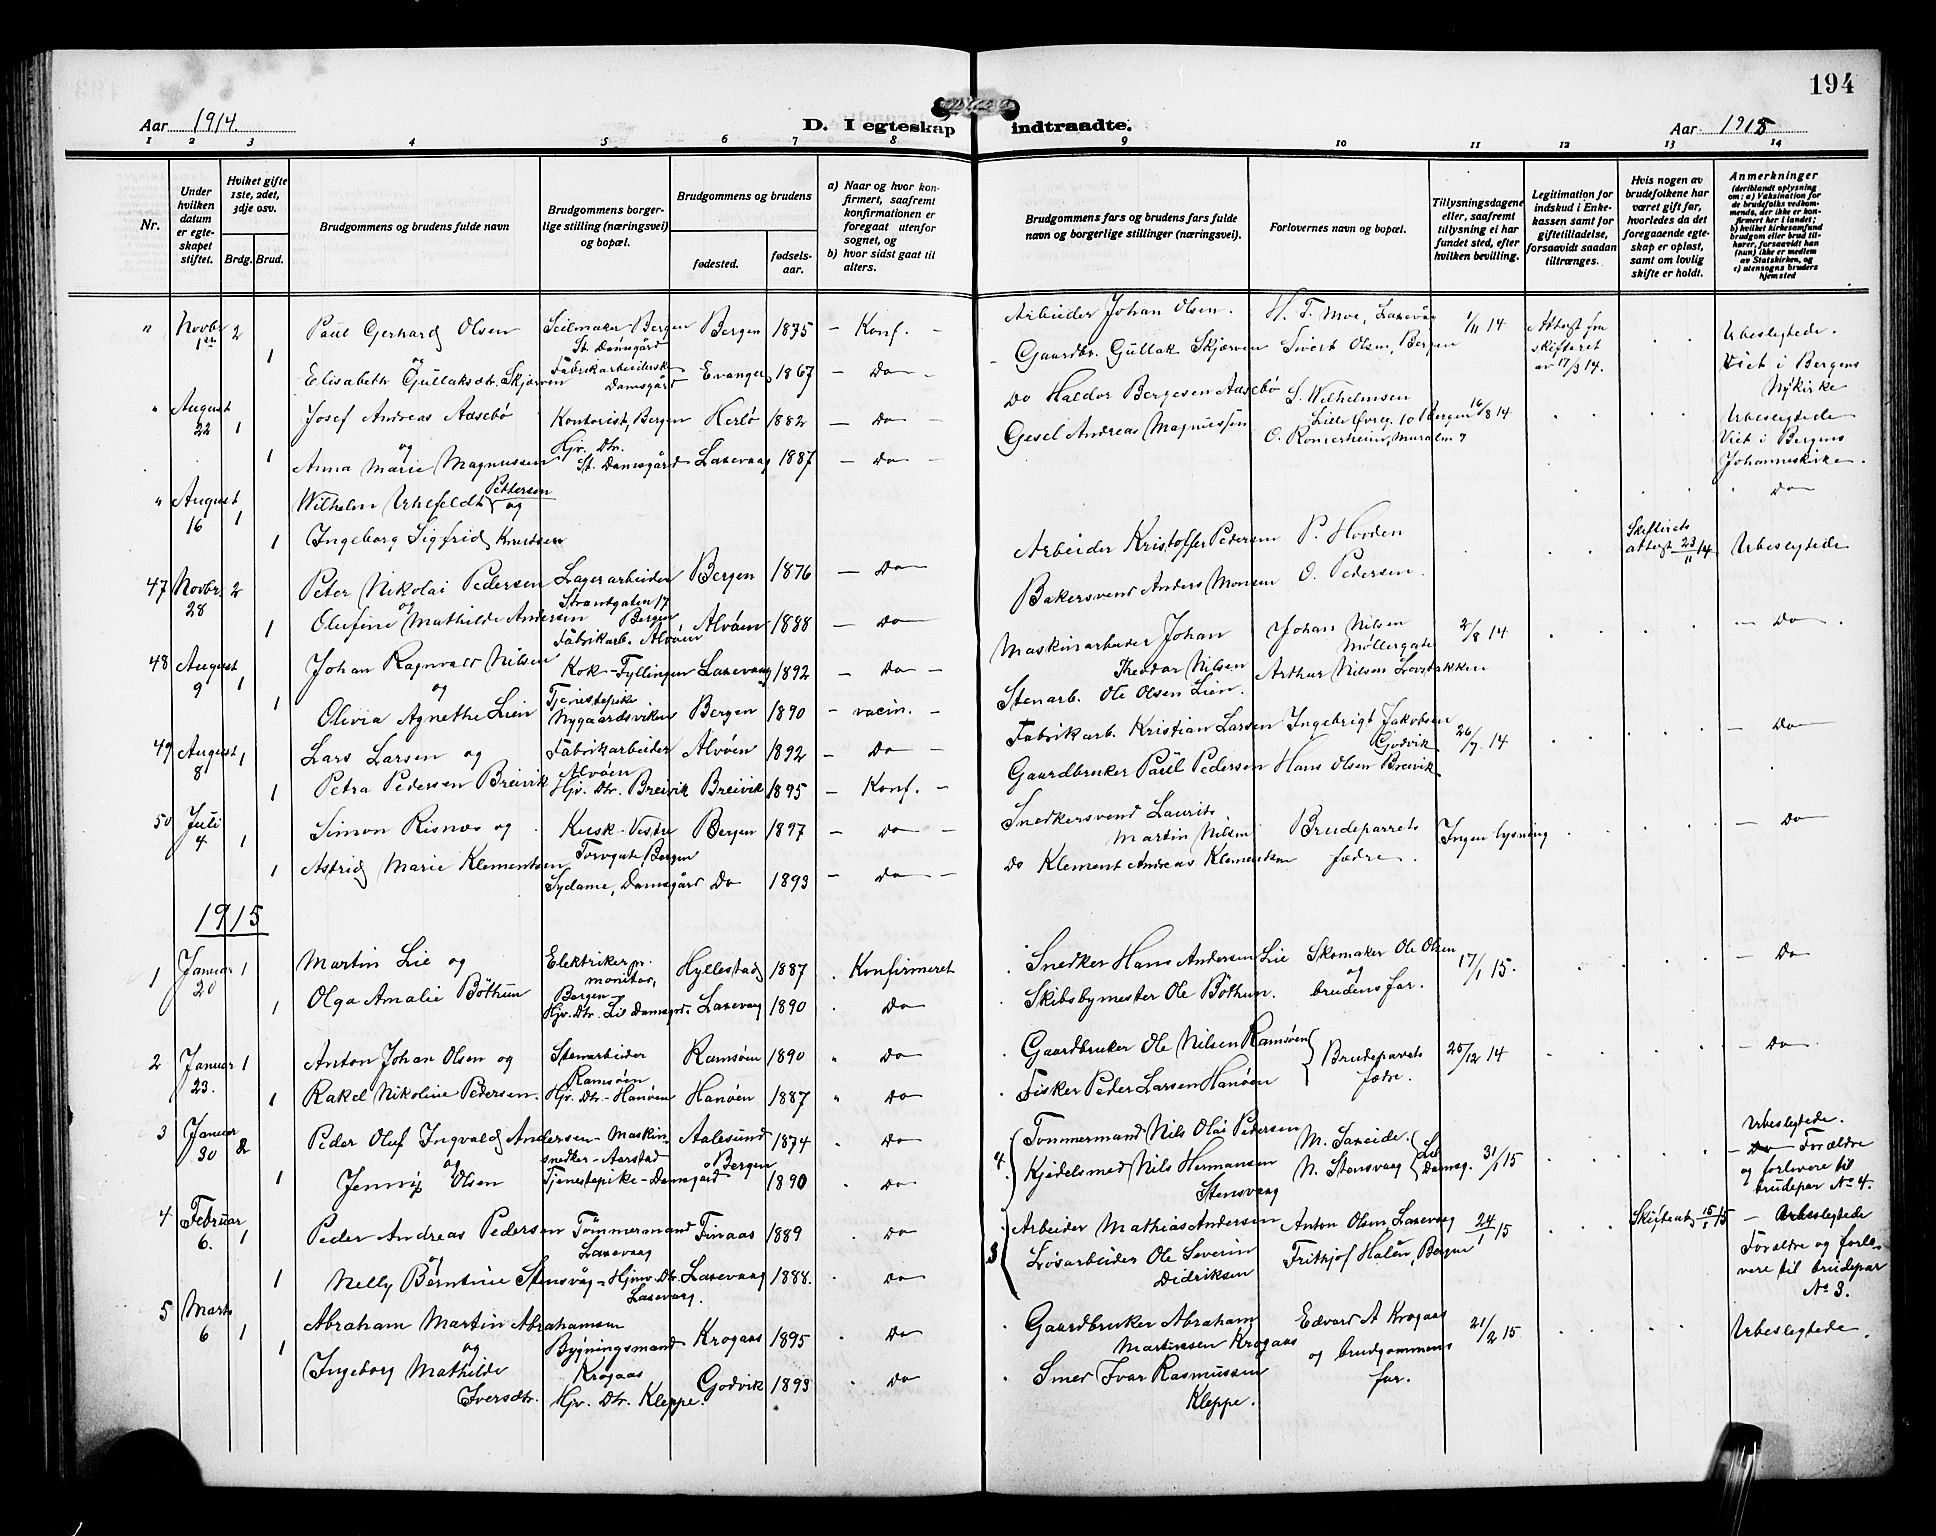 194
Aar 1914.
D. I egteskap indtraadte.
Aar 1915
1 2 3 4 5 6 7 8 9 10 11 12 13 14
Nr.
Under hvilken datum er egteskapet stiftet.
Hviket gifte 1ste, 2det, 3dje osv.
Brdg. Brud.
Brudgommens og brudens fulde navn
Brudgommens borgerlige stilling (næringsvei) og bopæl.
Brudgommens og brudens
fødested.
fødselsaar.
a) Naar og hvor konfirmert, saafremt konfirmationen er foregaat utenfor sognet, og
b) hvor sidst gaat til alters.
Brudgommens fars og brudens fars fulde navn og borgerlige stillinger (næringsvei).
Forlovernes navn og bopæl.
Tillysningsdagene eller, saafremt tillysning ei har fundet sted, efter hvilken bevilling.
Legitimation for indskud i Enkekassen samt for giftetilladelse, forsaavidt saadan tiltrænges.
Hvis nogen av brudefolkene har været gift før, hvorledes da det foregaaende egteskap er opløst, samt om lovlig skifte er holdt.
Anmerkninger
(deriblandt oplysning om: a) Vaksination for de brudefolks vedkommende, der ikke er konfirmert her i landet; b) hvilket kirkesamfund brudgom eller brud tilhører, forsaavidt han (hun) ikke er medlem av Statskirken, og c) utensogns bruders hjemsted
" Novbr 1ste 2 Paul Gerhard Olsen Seilmaker Bergen St. Damsgård Bergen 1875 – Konf. – Arbeider Johan Olsen. H. T. Moe, Laxevåg 1/11 14 Attest fra skifteret av 17/9 14. Ubeslegtede.
og
1 Elisabeth Gullaksdtr. Skjerven Fabrikarbeiderske Damsgård Evanger 1867 – Do – Gaardbr. Gullak Skjerven Sivert Olsen, Bergen Viet i Bergens Nykirke
" August 22 1 Josef Andreas Aasebø Kontorist, Bergen Herlø 1882 – Do – Do Haldor Bergesen Aasebø S. Wilhelmsen Lille Øvreg. 10 Bergen 16/8 14 Ubeslegtede
og
1 Anna Marie Magnussen Hjv. Dtr. St. Damsgård Laxevaag 1887 – Do – Gesel Andreas Magnussen Viet i Bergens Johanneskirke.
" August 16 1 Wilhelm Pettersen og Do
1 Ingeborg Sigfrid Knutsen
47 Novbr. 28 2 Peter Nikolai Pedersen Lagerarbeider Strandgaten 17 Bergen Bergen 1876 – Do – Arbeider Kristoffer Pedersen P. Hovden Skifterets attest 23/11 14 Ubeslegtede
og
1 Olufine Mathilde Andersen Fabrikarb. Alvøen Alvøen 1888 – Do – Bakersvend Anders Monsen O. Pedersen
48 August 9 1 Johan Ragnvald Nilsen Kok – Fyllingen Laxevaag 1892 – Do – Maskinarbeider Johan Theodor Nilsen Johan Nilsen Møllergate 2/8 14 – Do.
og
1 Olivia Agnethe Lien Tjenestepike Nygaardsviken Bergen 1890 – vacin. – Stenarb. Ole Olsen Lien. Arthur Nilsen Løvstakken
49 August 8 1 Lars Larsen og Fabrikarbeider Alvøen Alvøen 1892 – Do – Fabrikarb. Kristian Larsen Ingebrigt Jakobsen Godvik 26/7 14 – Do
1 Petra Pedersen Breivik Hjv. Dtr. Breivik Breivik 1895 – Konf. – Gaardbruker Paul Pedersen Hans Olsen Breivik
50 Juli 4 1 Simon Risnes og Kusk – Vestre Torvgate Bergen Bergen 1897 – Do – Snedkersvend Laurits Martin Nilsen Brudeparrets fædre. Ingen lysning – Do
1 Astrid Marie Klementsen Sydame, Damsgård Do 1893 – Do – Do Klement Andreas Klementsen
1915
1 Januar 20 1 Martin Lie og Elektriker, montør, Bergen Hyllestad 1887 . Konfirmeret Snedker Hans Andersen Lie Skomaker Ole Olsen og brudens far. 17/1 15. – Do
1 Olga Amalie Bøthun Hjv. Dtr. Lil. Damsgrd. Laxevaag 1890 . Do Skibsbymester Ole Bøthun.
2 Januar 23. 1 Anton Johan Olsen og Stenarbeider Ramsøen Ramsøen 1890 " Do Gaardbruker Ole Nilsen Ramsøen Brudeparets fædre. 25/12 14 – Do
1 Rakel Nikoline Pedersen. Hjv. Dtr. – Hanøen Hanøen 1887 " Do Fisker Peder Larsen Hanøen
3 Januar 30 2 Peder Oluf Ingvald Andersen – Maskinsnedker – Aarstad Aalesund 1874 . Do 4. Tømmermand Nils Olai Pedersen M. Sareide. 31/1 15 Ubeslegtede.
og
1 Jenny Olsen Tjenestepike – Damsgård Bergen 1890 . Do Kjedelsmed Nils Hermansen Stensvaag N. Stensvaag Lil Damsg. – Do – Forældre og forlovere til brudepar No 4.
4 Februar 6. 1 Peder Andreas Pedersen Tømmermand Laxevaag Finaas 1889 . Do 3 Arbeider Mathias Andersen Anton Olsen Laxevaag 24/1 15 Skifteatt. 15/1 15 – Ubeslegtede
og
1 Nelly Berntine Stensvåg – Hjmv. Dtr. Laxevaag. Laxevaag 1888. . Do Løsarbeider Ole Severin Didriksen Frithjof Halen, Bergen Forældre og forlovere til brudepar No 3.
5 Marts 6 1 Abraham Martin Abrahamsen Bygningsmand Krogaas Krogaas 1895 . Do Gaardbruker Abraham Martinesen Krogaas Edvard A Krogaas og brudgommens far. 21/2 15 Ubeslegtede.
og
1 Ingeborg Mathilde Iversdtr. Hjv. Dtr. Kleppe. Godvik 1893 . Do Smed Ivar Rasmussen Kleppe.